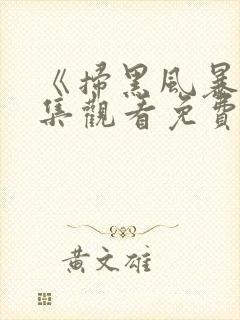 《掃黑風暴
集觀看免費
黃文雄